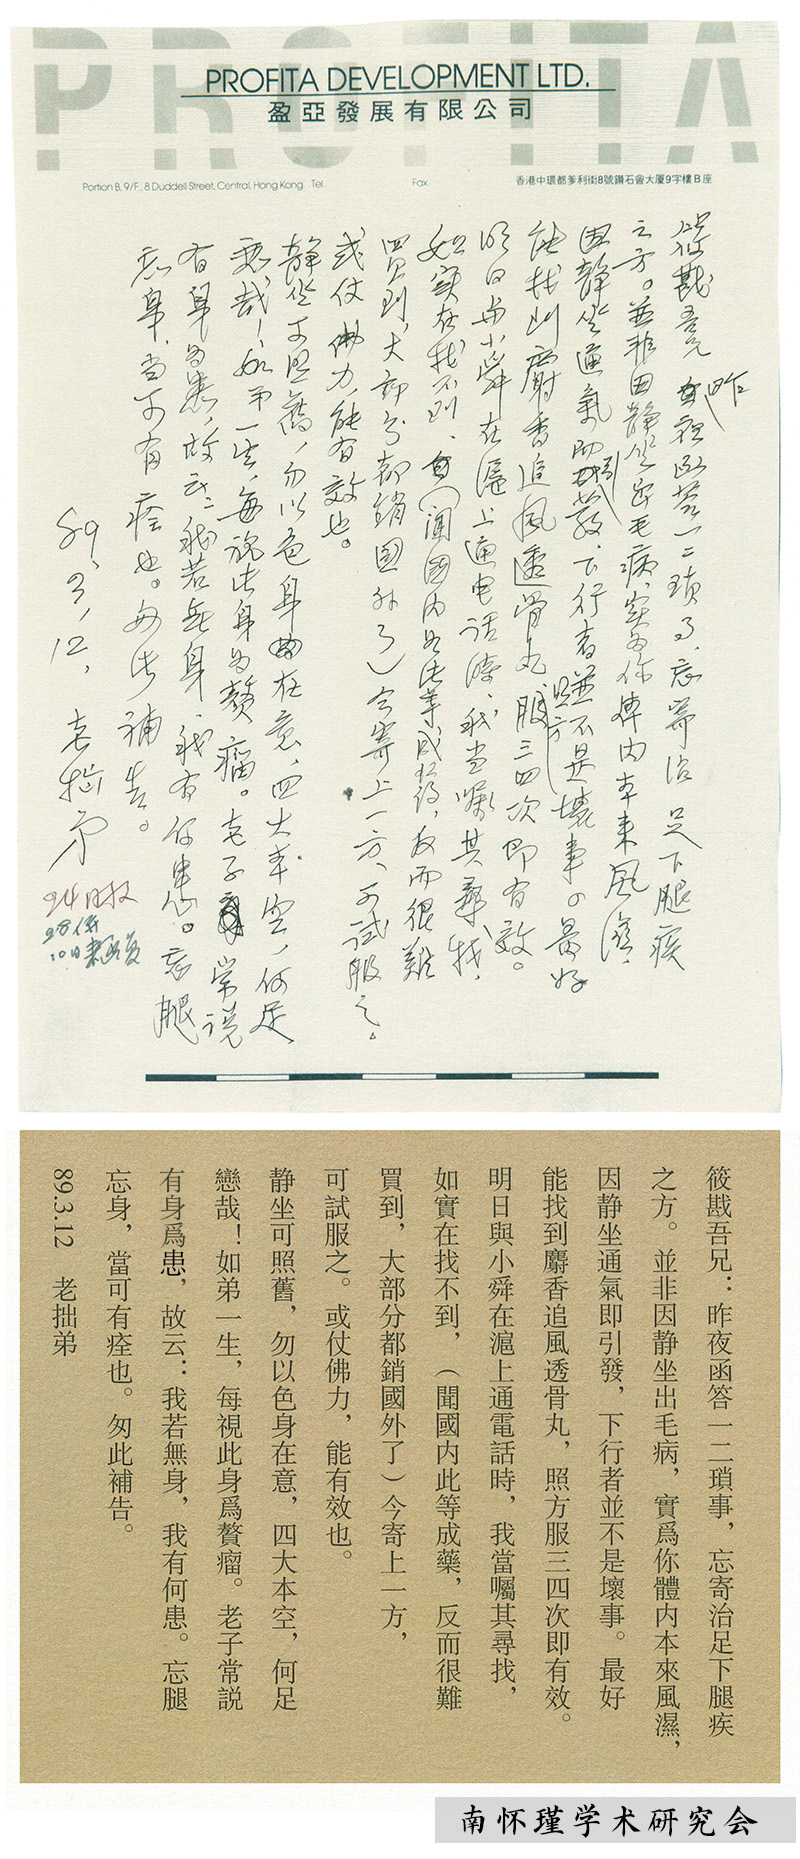 PROFITA
PROFITA DEVELOPMENT LTD.
盈亞發展有限公司
Portion B, 9/F., 8 Duddell Street, Central, Hong Kong. Tel.
Fax
香港中環都爹利街8號鑽石會大廈9字樓B座
筱戡吾兄 昨夜函答一二瑣事、忘寄治足下腿疾
之方。並非因静坐出毛病、实为你体内本来风濕、
因静坐通氣即引發、下行者並不是壞事。最好
能找到麝香追风透骨丸、照方服三四次即有效。
明日与小舜在滬上通电话时、我当嘱其尋找，
如实在找不到、（闻國内此等成药，反而很難
買到，大部分都銷國外了）今寄上一方、可試服之。
或仗佛力，能有效也。
静坐可照舊，勿以色身在意，四大本空，何足
恋哉！如弟一生，每視此身为贅瘤。老子常说
有身为患，故云：我若無身、我有何患。忘腿
忘身，当可有痊也。匆此補告。
89,3,12, 老拙弟
24日收
筱戡吾兄：昨夜函答一二瑣事，忘寄治足下腿疾
之方。並非因静坐出毛病，實爲你體内本來風濕，
因静坐通氣即引發，下行者並不是壞事。最好
能找到麝香追風透骨丸，照方服三四次即有效。
明日與小舜在滬上通電話時，我當囑其尋找，
如實在找不到，（聞國内此等成藥，反而很難
買到，大部分都銷國外了）今寄上一方，
可試服之。或仗佛力，能有效也。
静坐可照舊，勿以色身在意，四大本空，何足
戀哉！如弟一生，每視此身爲贅瘤。老子常説
有身爲患，故云：我若無身，我有何患。忘腿
忘身，當可有痊也。匆此補告。
89.3.12 老拙弟
南怀瑾学术研究会